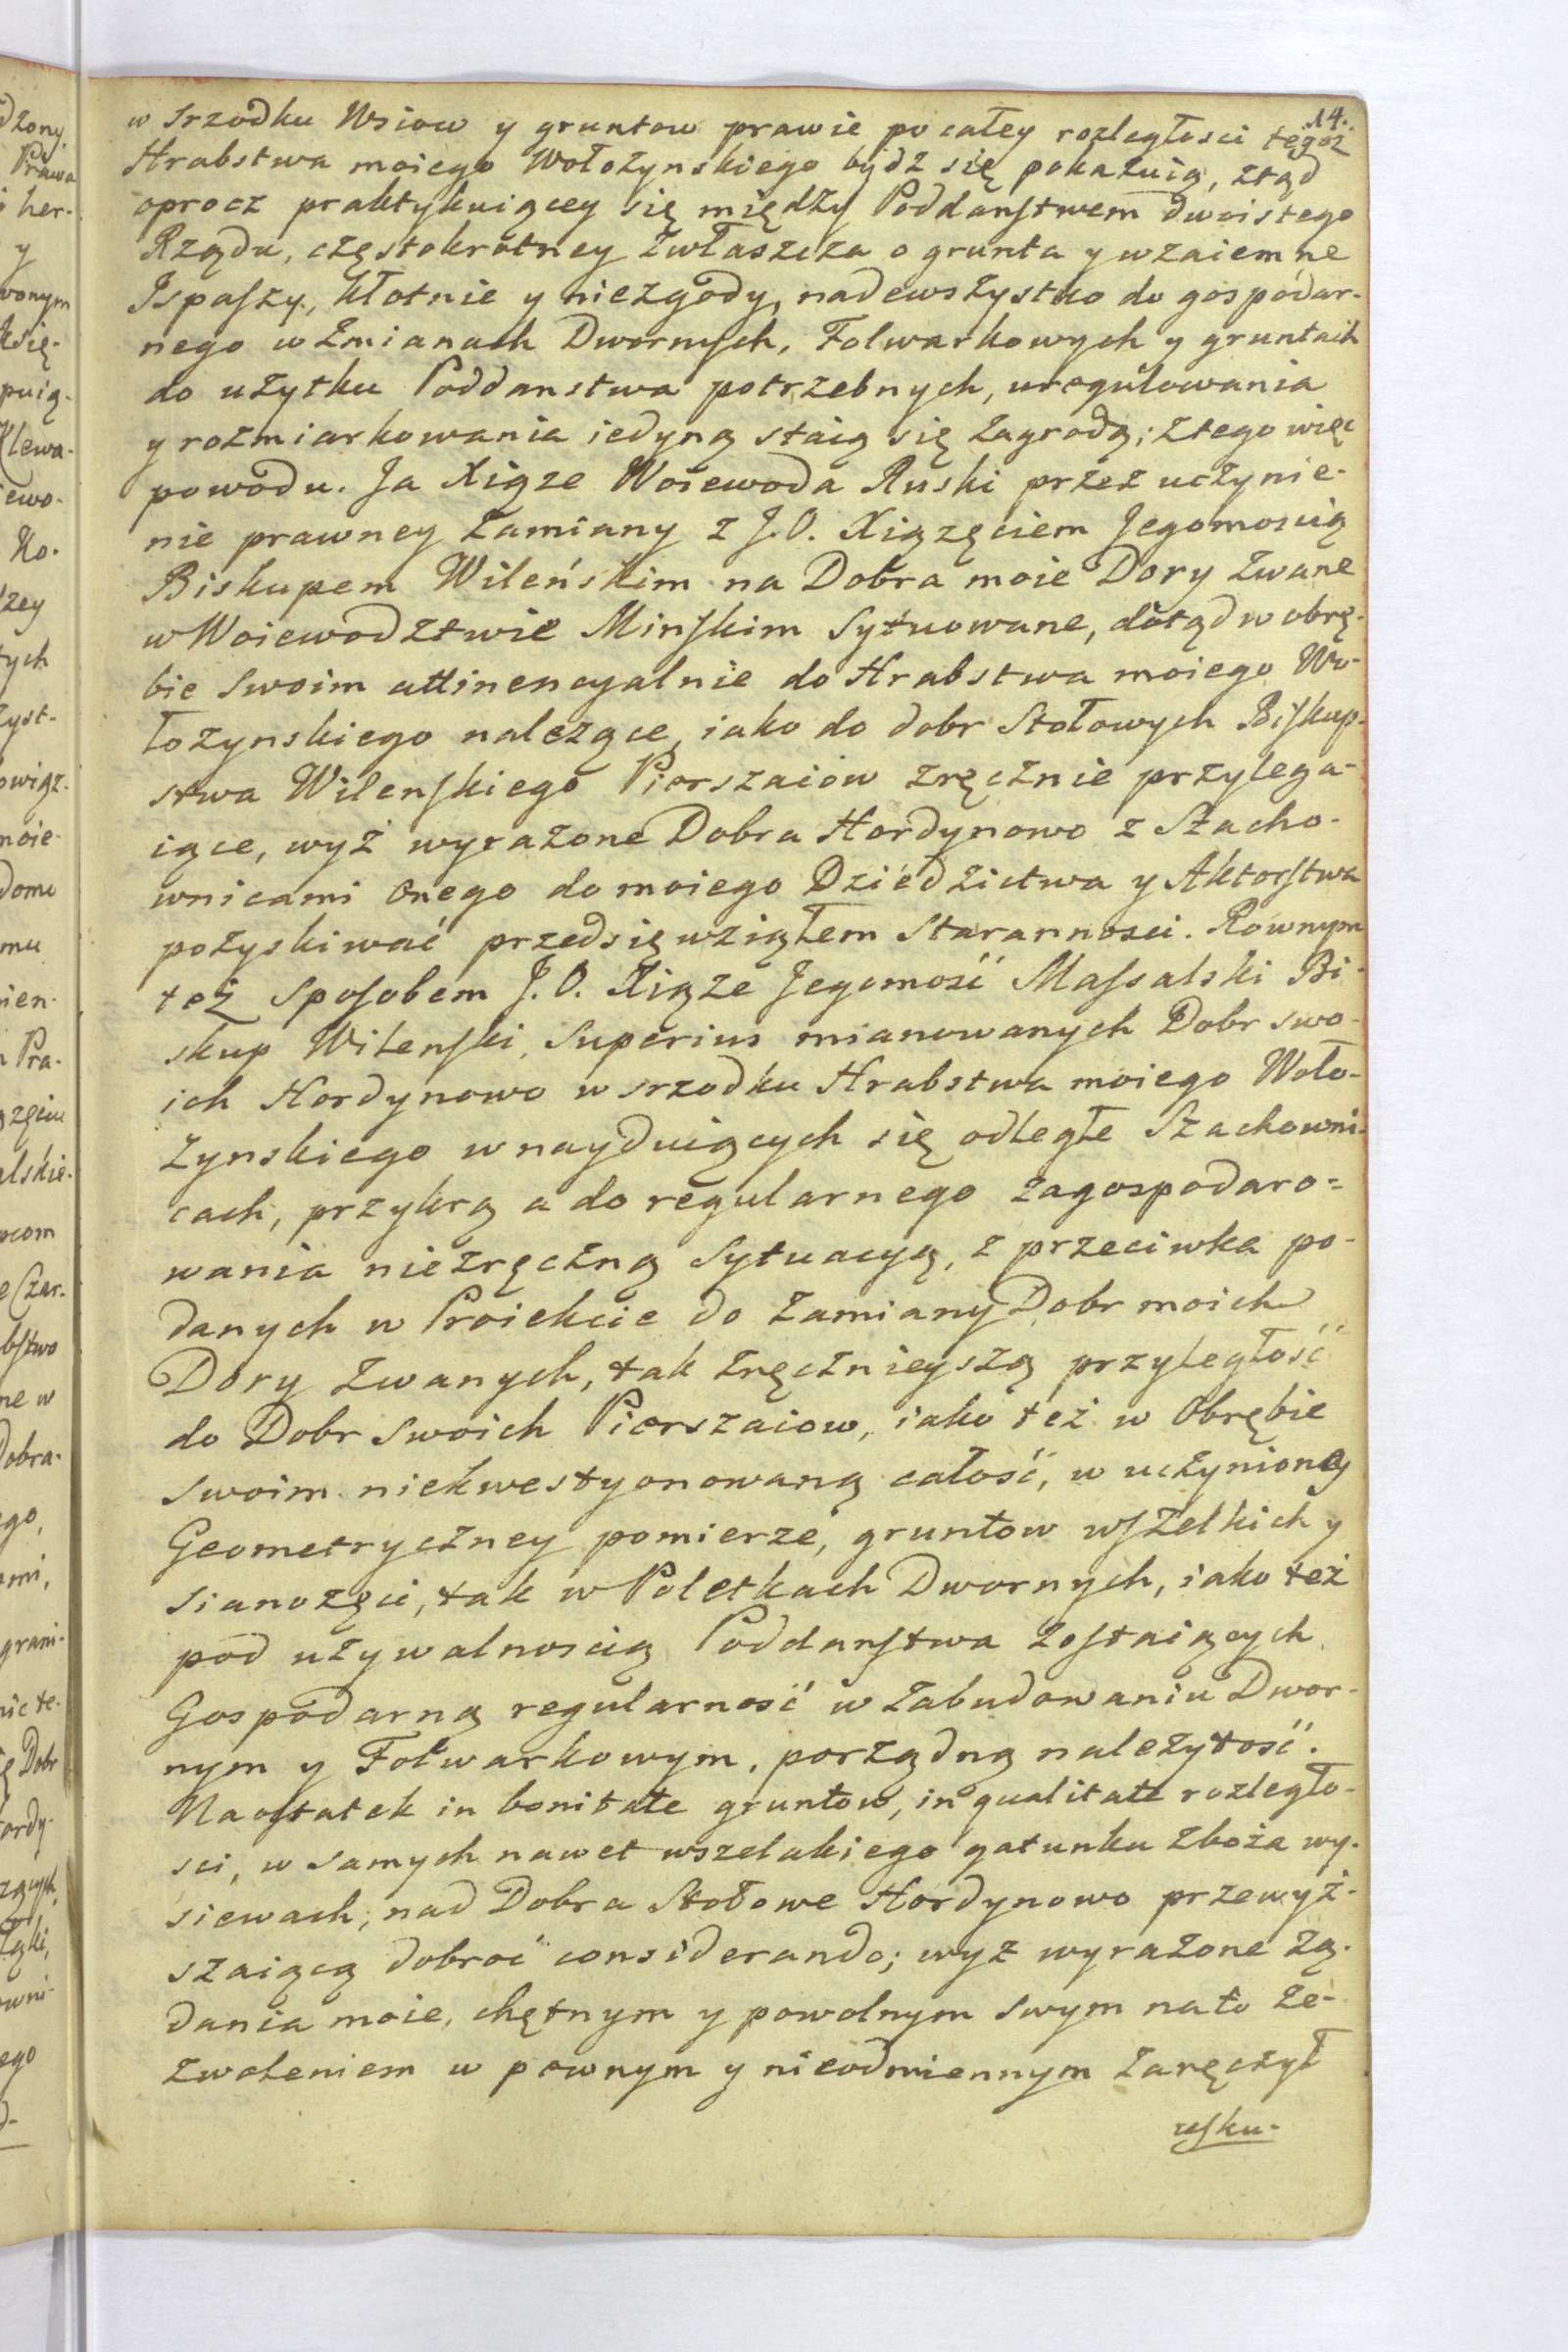 14.
w srzodku Wsiow y gruntow prawie po całey rozległosci tegoż
Hrabstwa moiego Wołożynskiego bydz się pokazuią, ztąd
oprocz praktykuiącey się między Poddanstwem dwoistego
Rządu, częstokrotney zwłaszcza o grunta y wzaiemne
Ispaszy, kłotnie y niezgody, nadewszystko do gospodar-
nego w Zmianach Dwornych, Folwarkowych y gruntach
do użytku Poddanstwa potrzebnych, uregulowania
y rozmiarkowania iedyną staią się zagrodą; ztego więc
powodu. Ja Xiąze Woiewoda Ruski przez uczynie-
nie prawney Zamiany z J.O. Xiązęciem Jegomoscią
Biskupem Wileńskim na Dobra moie Dory zwane
w Woiewodztwie Minskim Sytuowane, dotąd w obrę-
bie swoim attinencyalnie do Hrabstwa moiego Wo-
łozynskiego nalezące, iako do dobr Stołowych Biskup-
stwa Wilenskiego Pierszaiow zręcznie przylega-
iące, wyż wyrazone Dobra Hordynowo z Szacho-
wnicami onego do moiego Dziedzictwa y Aktorstwa
pozyskiwać przedsięwziąłem Starannosci. Rownym
też Sposobem J.O. Xiąze Jegomość Massalski Bi-
skup Wilenski, Superius mianowanych Dobr swo-
ich Hordynowo w srzodku Hrabstwa moiego Woło-
zynskiego w nayduiących się odległe Szachowni-
cach, przykrą a do regularnego zagospodaro=
wania niezręczną Sytuacyą, z przeciwka po-
danych w Proiekcie do Zamiany Dobr moich
Dory zwanych, tak zręcznieyszą przyległość
do Dobr swoich Pierszaiow, iako też w Obrębie
swoim niekwestyonowaną całość, w uczynioney
Geometryczney pomierze, gruntow wszelkich y
sianozęci, tak w Poletkach Dwornych, iako też
pod używalnoscią Poddanstwa zostaiących
Gospodarną regularność w Zabudowaniu Dwor-
nym y Folwarkowym, porządną należytość.
Naostatek in bonitate gruntow, in qualitate rozległo-
sci, w samych nawet wszelakiego gatunku zboża wy-
siewach, nad Dobra Stołowe Hordynowo przewyż-
szaiącą dobroć considerando; wyz wyrazone żą-
dania moie, chętnym y powolnym swym na to ze-
zwoleniem w pewnym y nieodmiennym zaręczył
usku-